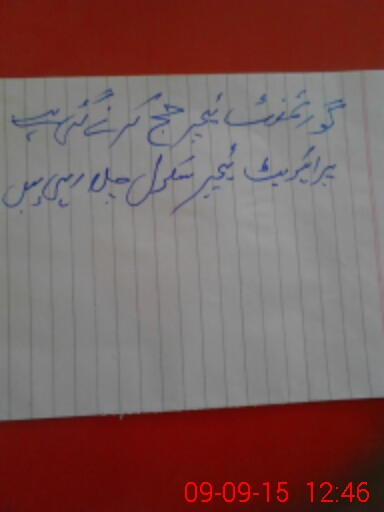 گورنمنٹ ٹیچر حج کرنے گئی ہے
پرائیویٹ ٹیچر سکول چلا رہی ہیں
09-09-15 12:46